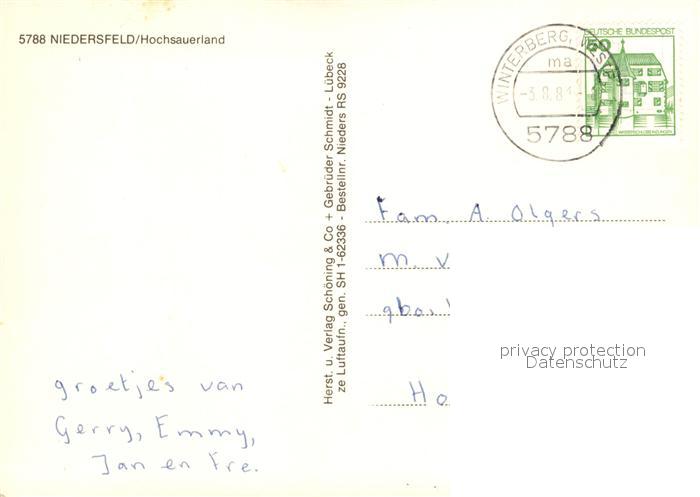 5788 NIEDERSFELD/Hochsauerland
DEUTSCHE BUNDESPOST
50
WASSERSCHLOSS INZLINGEN
WINTERBERG, WESTF
ma
-3.8.8
5788
Herst. u. Verlag Schöning & Co + Gebrüder Schmidt - Lübeck
ze Luftaufn., gen. SH 1-62336 - Bestellnr. Nieders RS 9228
Fam. A Olgers
M. V
Ho
privacy protection
Datenschutz
groetjes van
Gerry, Emmy,
Jan en Fre.